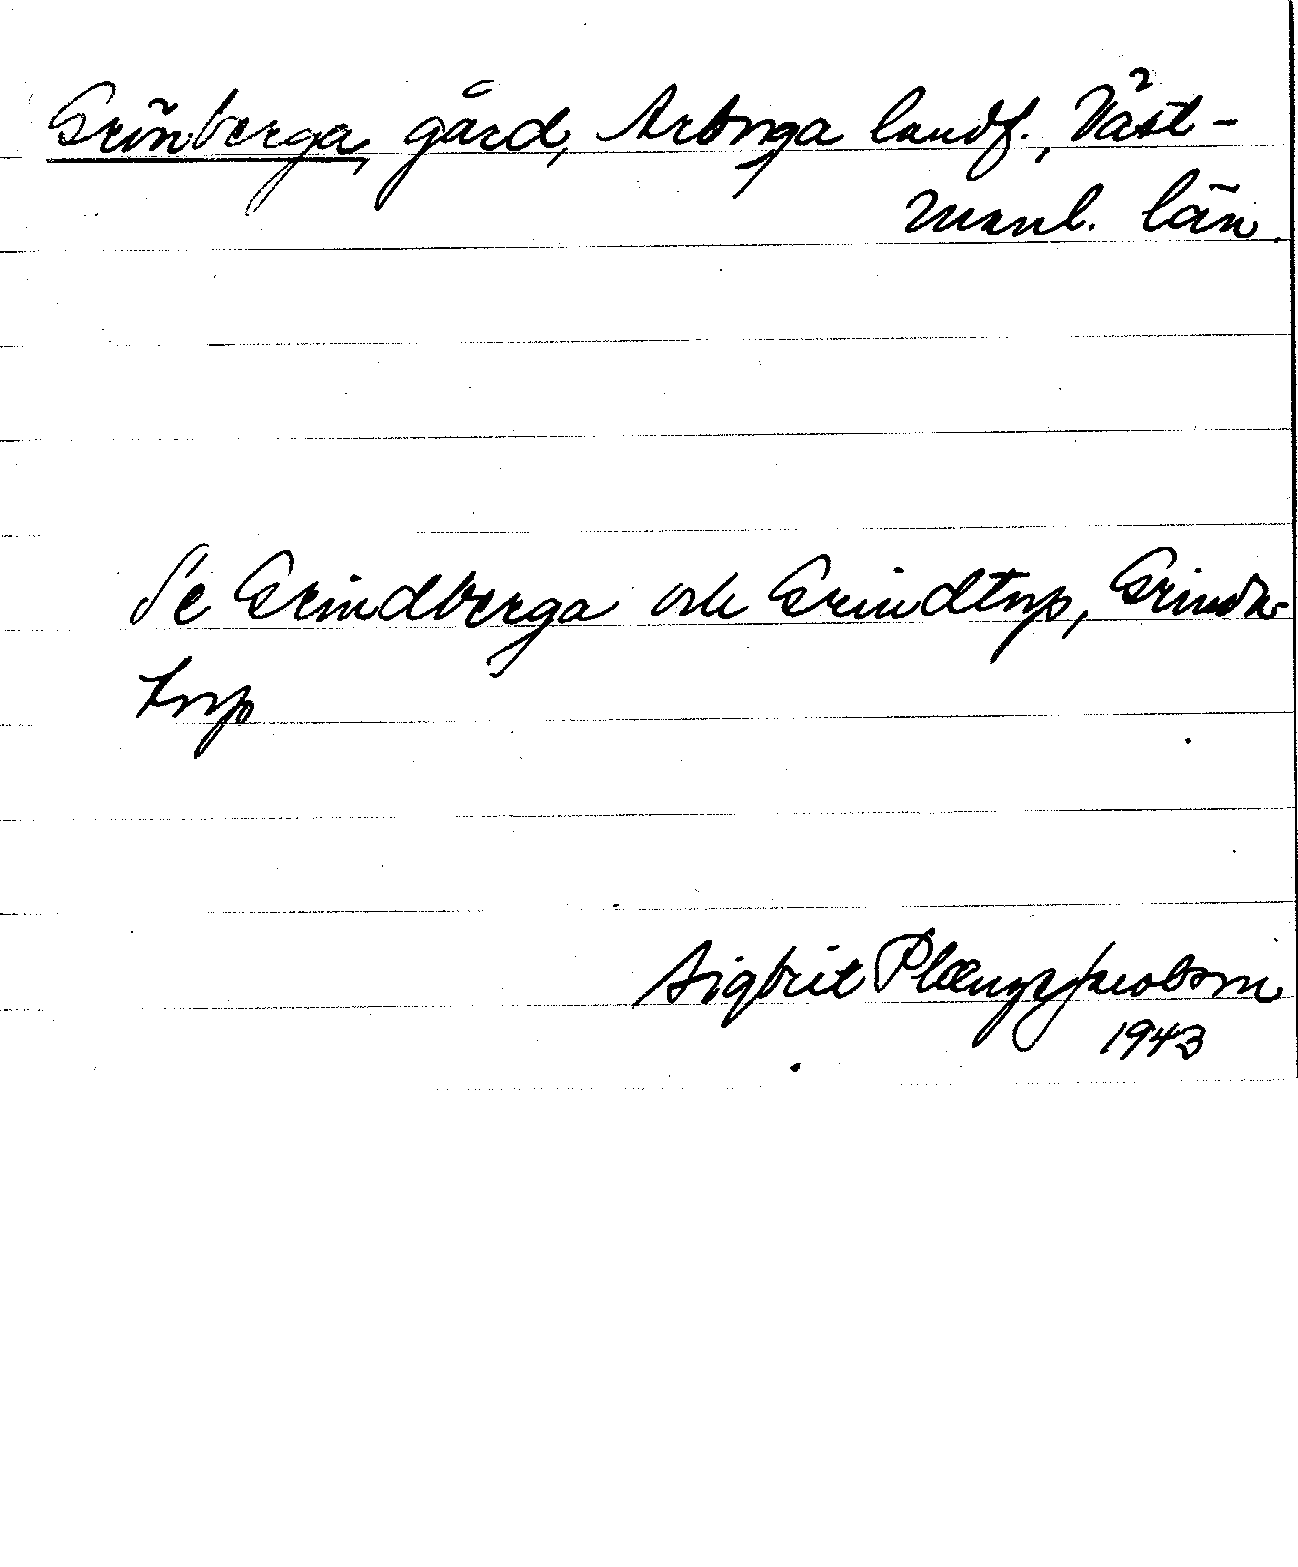 Grönberga, gård, Arboga landf., Väst-
manl. län.
Se Grindberga och Grindtorp, Grinda-
torp
Sigbrit Plænge Jacobson
1943